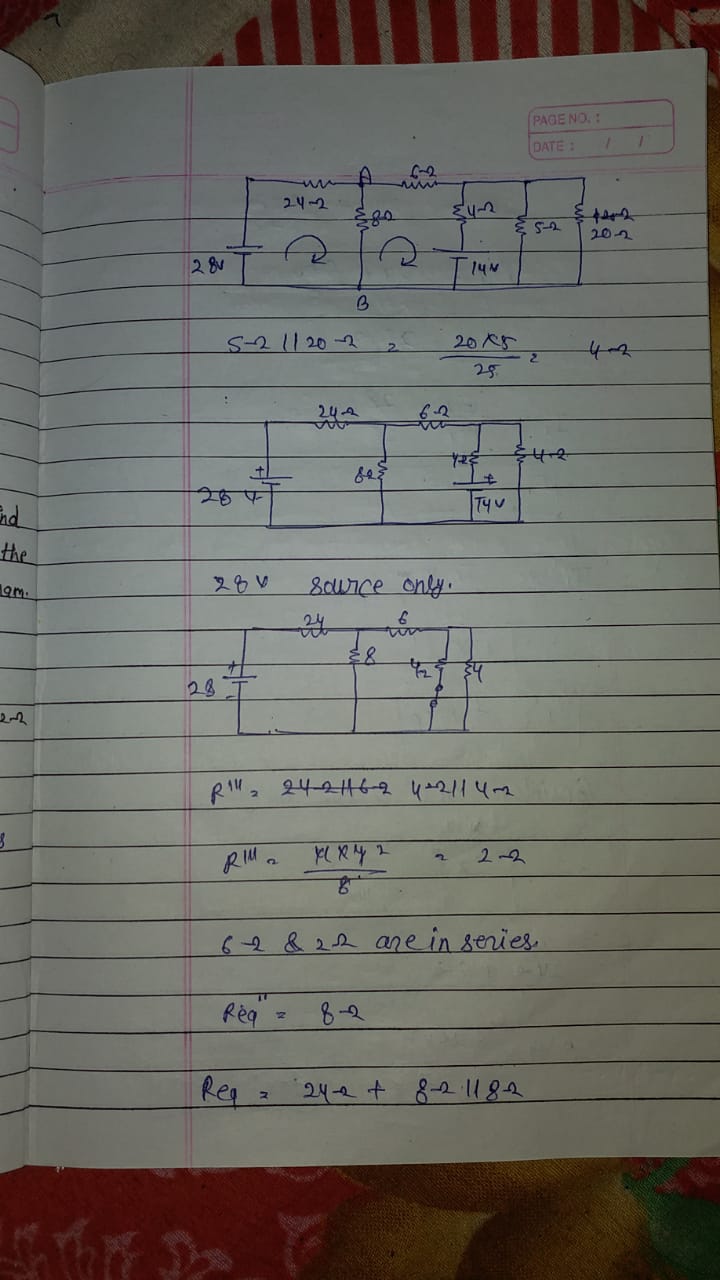 PAGE NO. :
DATE : / /
A 6Ω
24Ω 8Ω 4Ω 5Ω 20Ω
28V 14V
B
5Ω || 20Ω = 20×5/25 = 4Ω
24Ω 6Ω
8Ω 4Ω 4Ω
+ +
28V 14V
28V source only.
24 6
8 4Ω 4
+
28
-
R''' = 24Ω||6Ω 4Ω||4Ω
R''' = 4×4 2/8 = 2Ω
6Ω & 2Ω are in series.
Req'' = 8Ω
Req = 24Ω + 8Ω || 8Ω
nd
the
am.
2Ω